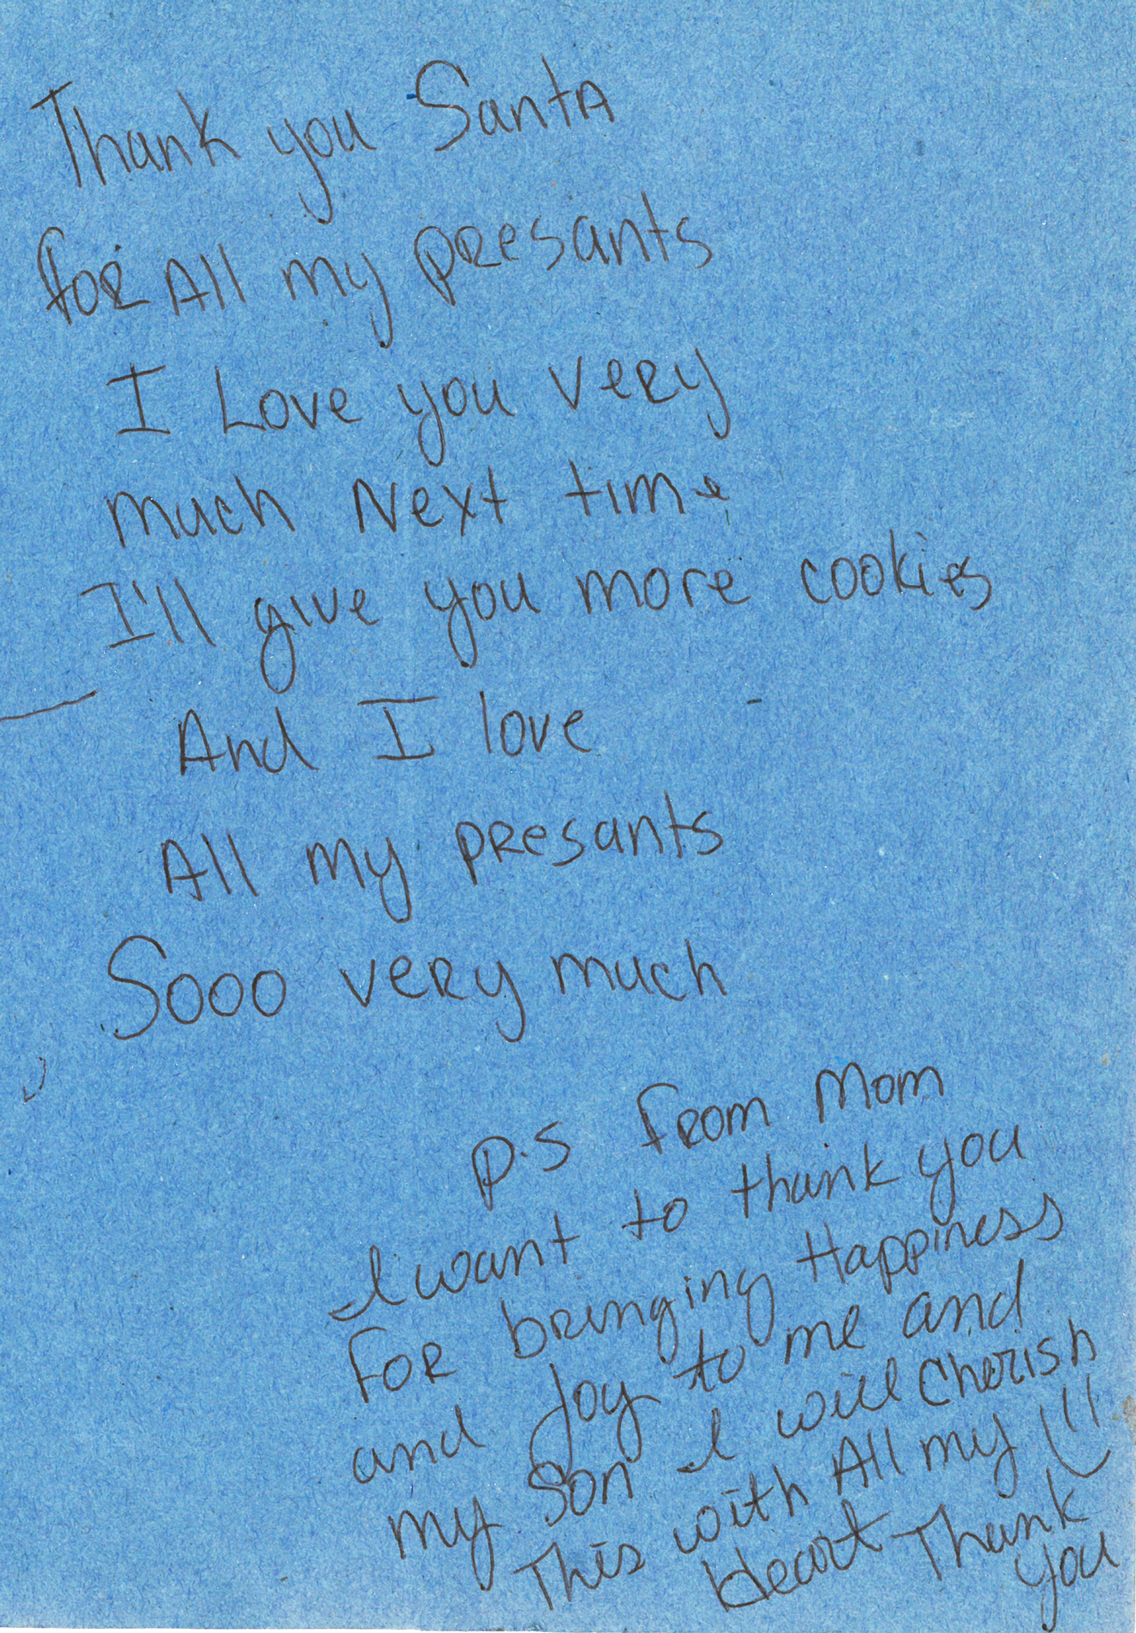 Thank you Santa
for All my presants
I Love you very
much Next time
I'll give you more cookies
And I love
All my presants
Sooo very much
P.S from Mom
I want to thank you
For bringing Happiness
and Joy to me and
my Son I will Cherish
This with All my
Heart Thank
you